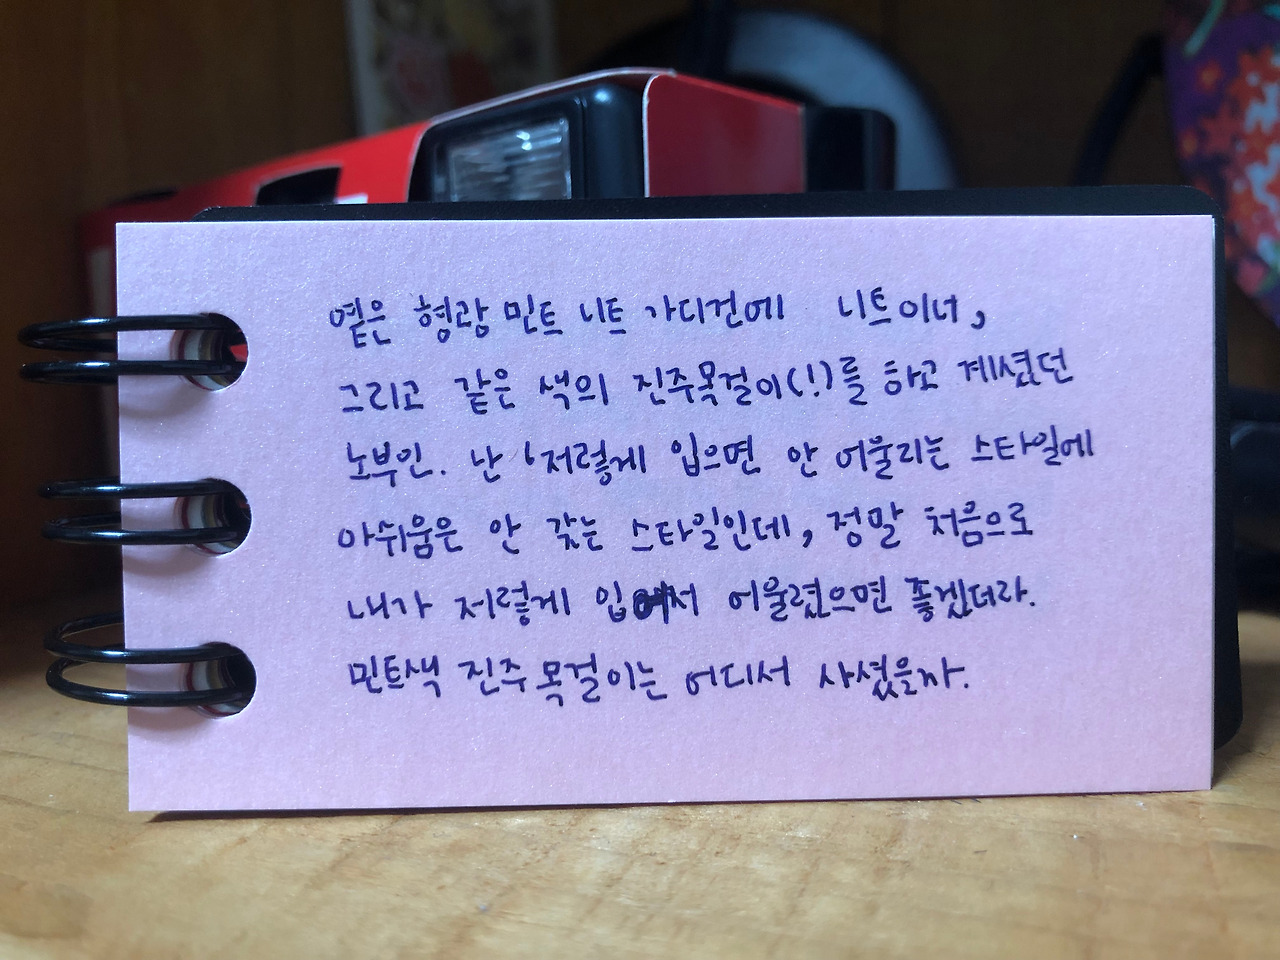 옅은 형광 민트 니트 가디건에 니트이너,
그리고 같은 색의 진주목걸이(!)를 하고 계셨던
노부인. 난 '저렇게 입으면 안 어울리는 스타일에
아쉬움은 안 갖는 스타일인데, 정말 처음으로
내가 저렇게 입어서 어울렸으면 좋겠더라.
민트색 진주목걸이는 어디서 사셨을까.